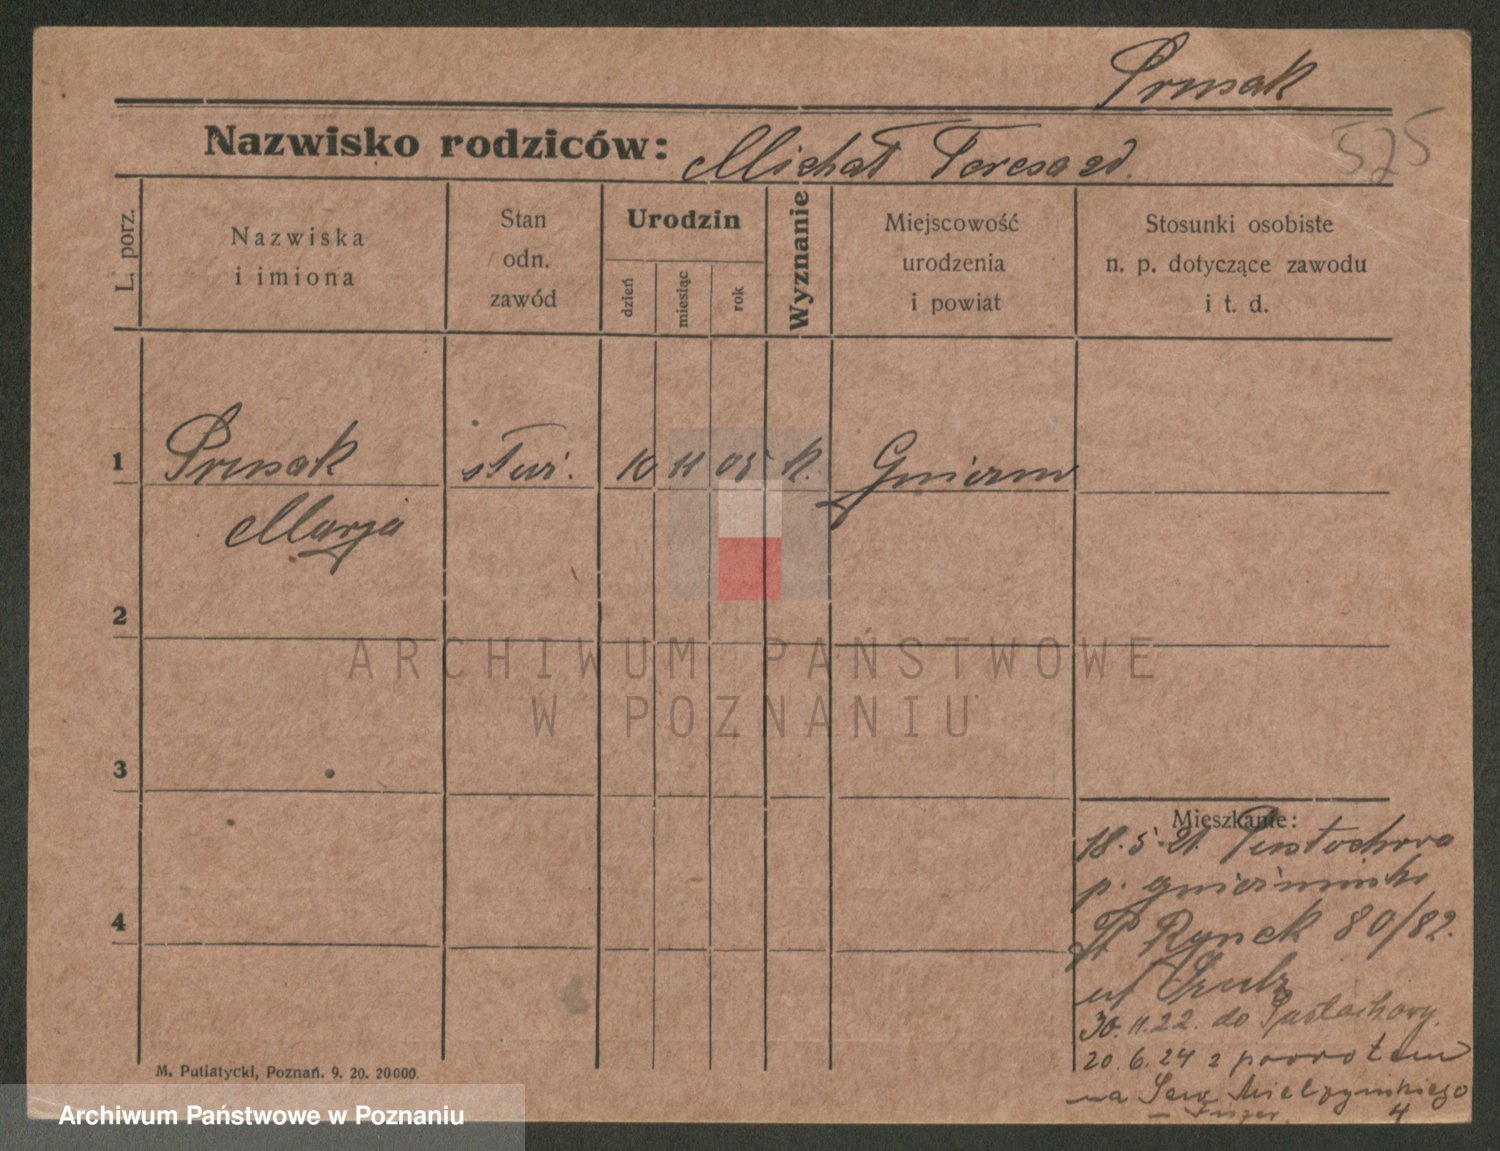 Prusak
575
Nazwisko rodziców: Michał Teresa zd.
L. porz.
Nazwiska
i imiona
Stan
odn.
zawód
Urodzin
dzień
miesiąc
rok
Wyznanie
Miejscowość
urodzenia
i powiat
Stosunki osobiste
n. p. dotyczące zawodu
i t. d.
1 Prusak służ. 10 11 05 k. Gniezno
Marja
2
3
4
Mieszkanie:
18.5.21.
p.
St. Rynek 80/82.
u/ Szulz
30.11.22. do
20.6.24 z powrotem
na Sew. Mielżyńskiego
4
M. Putiatycki, Poznań. 9. 20. 20000.
ARCHIWUM PAŃSTWOWE
W POZNANIU
Archiwum Państwowe w Poznaniu